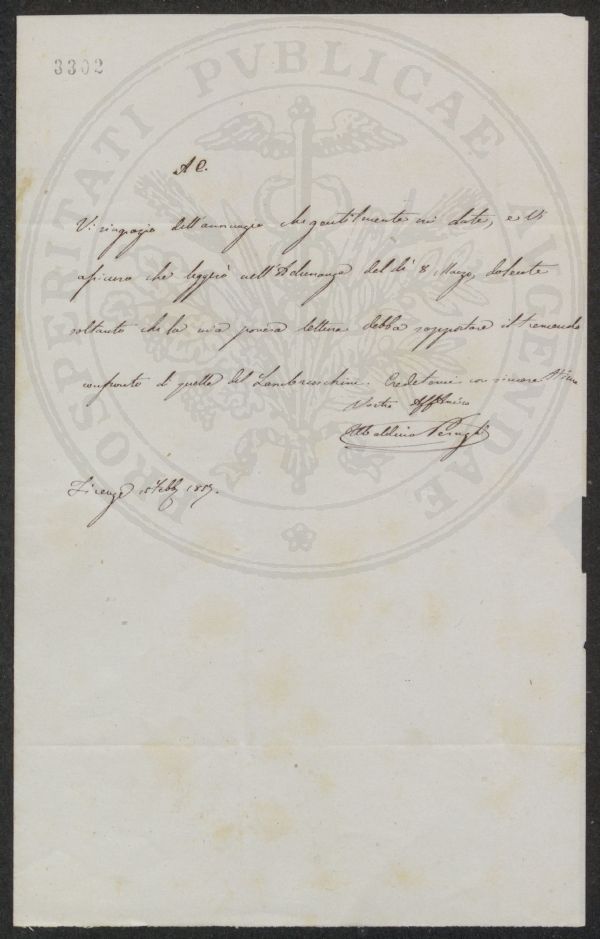 3302
PROSPERITATI PVBLICAE AVGENDAE
A C.
Vi ringrazio dell'annunzio che gentilmente mi date, e Vi
assicuro che leggerò nell'Adunanza del dì 8 Marzo, dolente
soltanto che la mia povera lettura debba sopportare il tremendo
confronto di quella del Lambruschini. Credetemi con sincera stima
Vostro Aff Amico
Ubaldino Peruzzi
Firenze 15 Febb 1857.